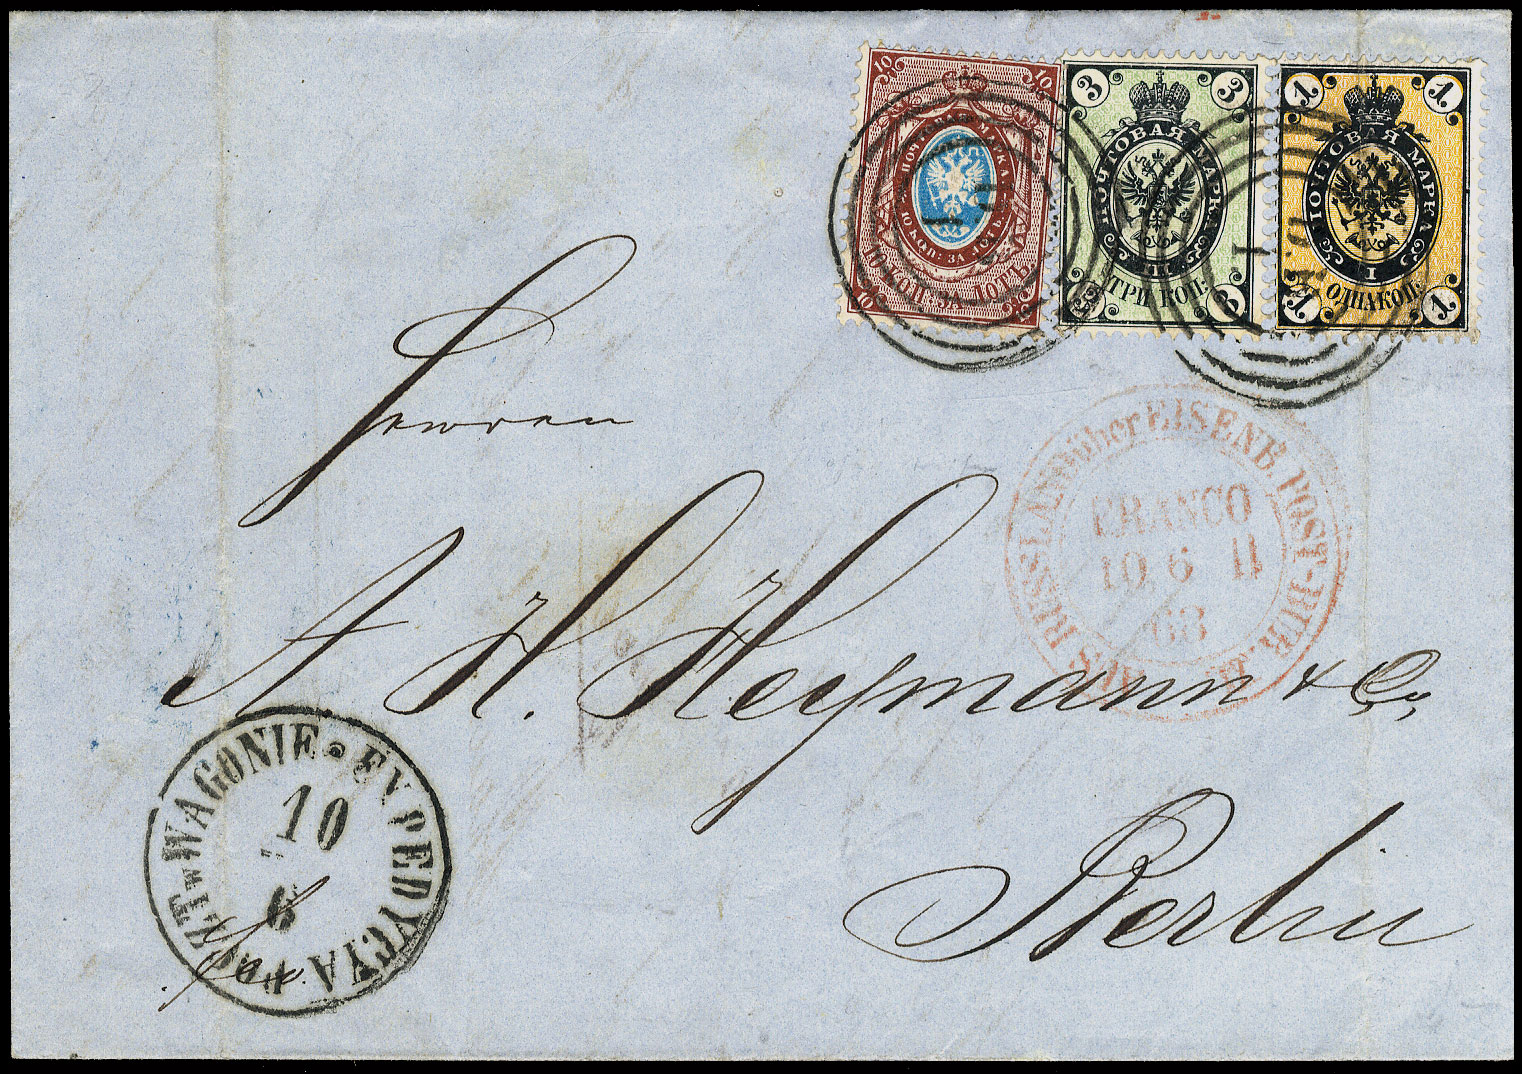 10 10
ПОЧТОВАЯ МАРКА.
10 КОП: ЗА ЛОТЪ.
10 КОП: ЗА ЛОТЪ
10 10
3 3
ПОЧТОВАЯ МАРКА
III
ТРИ КОП:
3 3
1 1
ПОЧТОВАЯ МАРКА
I
ОДНА КОП:
1 1
Herren
A H. Heymann & Co,
Berlin
AUS RUSSLAND über EISENB. POST-BUR.
FRANCO
10 6 II
68
EXPEDYCYA POCZT W WAGONIE
10
6